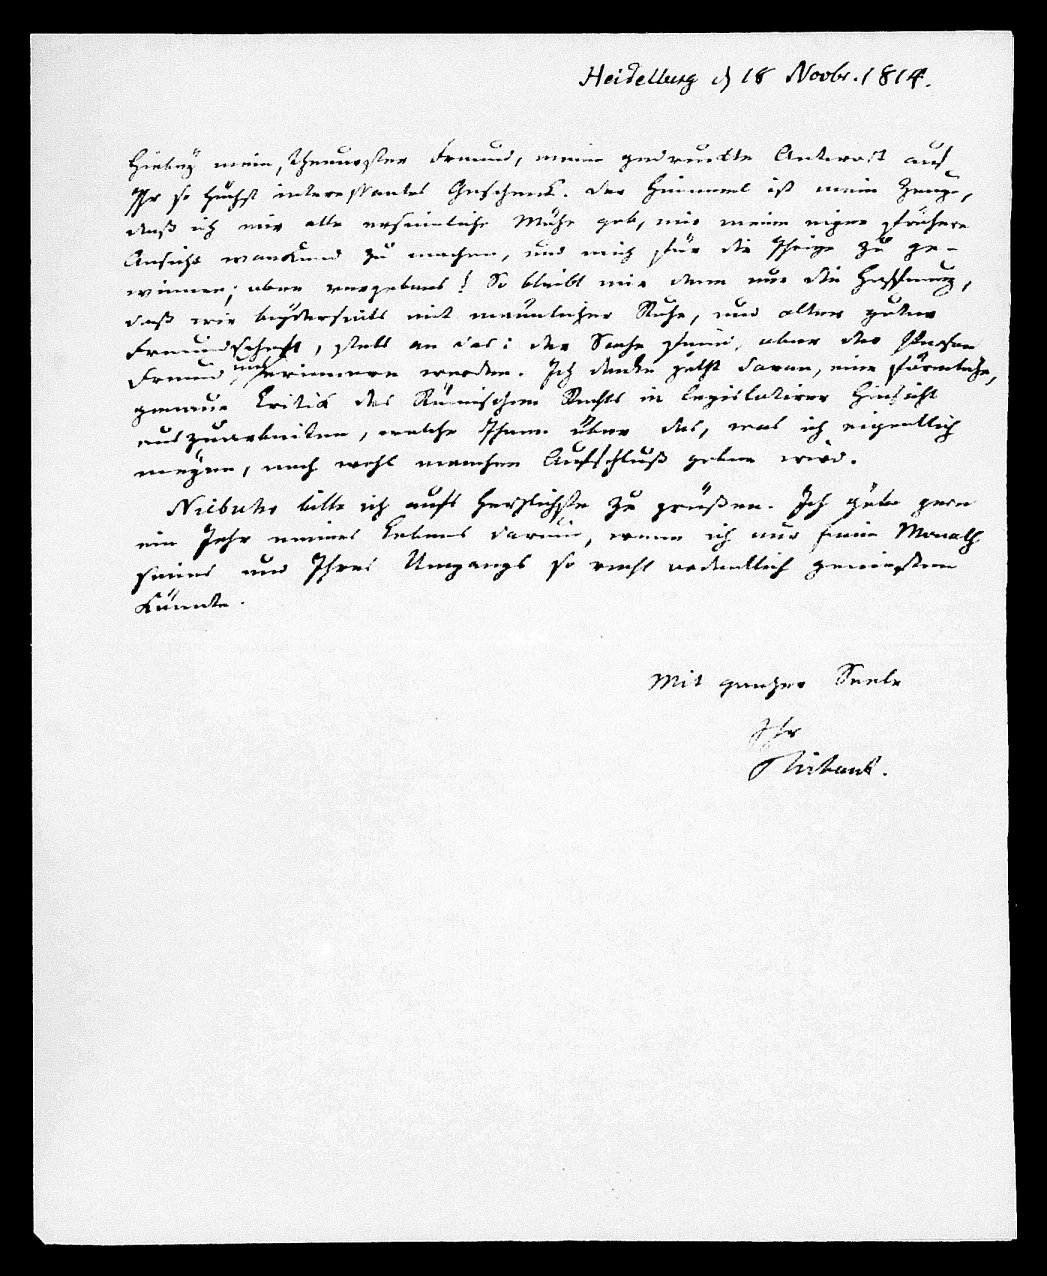 Heidelberg d 18 Novbr. 1814.
Hiebey mein, theuerster Freund, meine gedruckte Antwort auf
Ihr so höchst interessantes Geschenk. Der Himmel ist mein Zeuge,
daß ich mir alle ersinnliche Mühe gab, mir meine eigne frühere
Ansicht wankend zu machen, und mich für die Ihrige zu ge-
winnen; aber vergebens! So bleibt mir denn nur die Hoffnung,
daß wir beyderseits mit männlicher Ruhe, und alter guter
Freundschaft, stets an das: der Sache feind, aber der Person
Freund, uns erinnern werden. Ich denke jetzt daran, eine förmliche,
genaue Critik des Römischen Rechts in legislativer Hinsicht
auszuarbeiten, welche Ihnen über das, was ich eigentlich
meyne, noch wohl manchen Aufschluß geben wird.
Niebuhr bitte ich aufs herzlichste zu grüßen. Ich gäbe gern
ein Jahr meines Lebens darum, wenn ich nur einen Monath
seines und Ihres Umgangs so recht ordentlich genießen
könnte.
Mit ganzer Seele
Ihr
Thibaut.